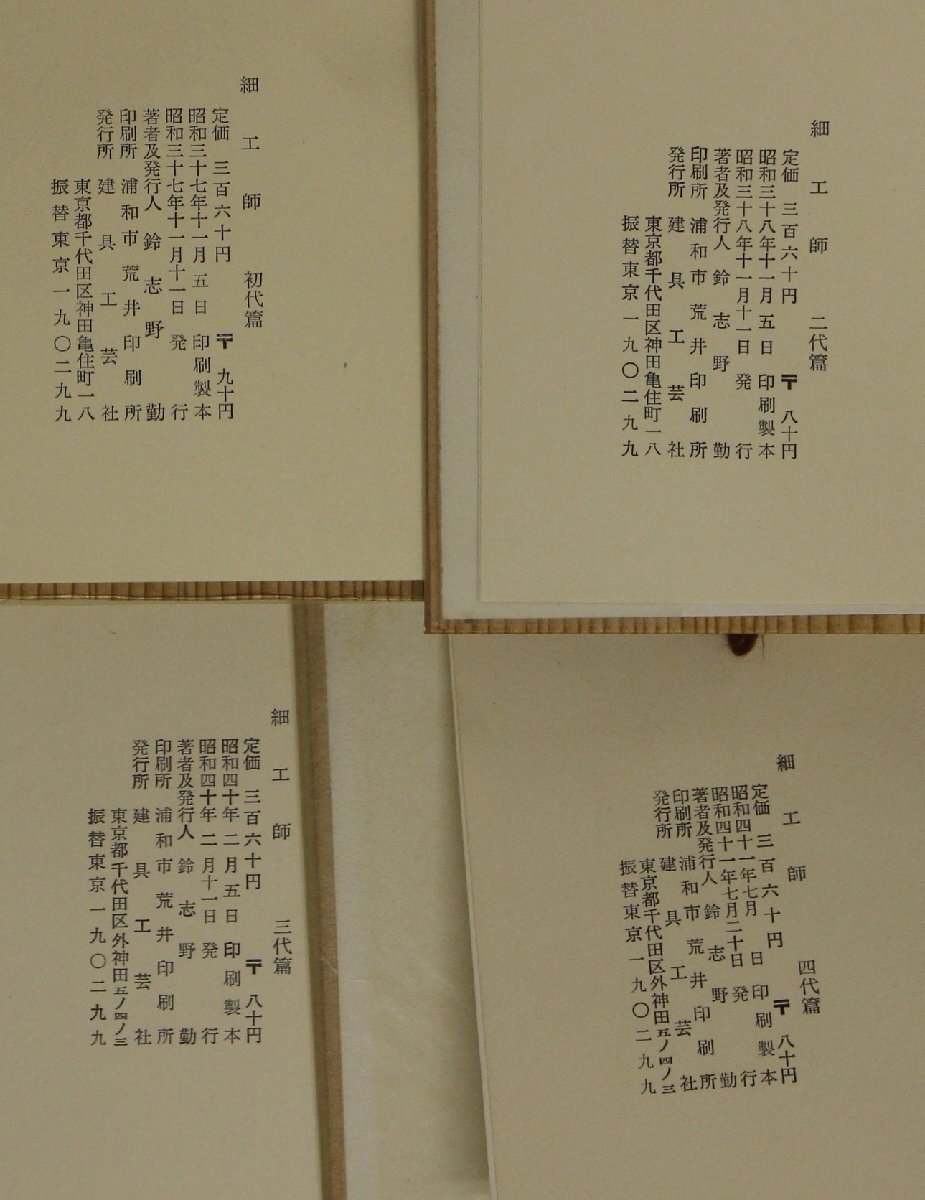 細工師 初代篇
定価 三百六十円 〒九十円
昭和三十七年十一月五日 印刷製本
昭和三十七年十一月十一日 発行
著者及発行人 鈴志野勤
印刷所 浦和市荒井印刷所
発行所 建具工芸社
東京都千代田区神田亀住町一八
振替東京一九〇二九九
細工師 二代篇
定価 三百六十円 〒八十円
昭和三十八年十一月五日 印刷製本
昭和三十八年十一月十一日 発行
著者及発行人 鈴志野勤
印刷所 浦和市荒井印刷所
発行所 建具工芸社
東京都千代田区神田亀住町一八
振替東京一九〇二九九
細工師 三代篇
定価 三百六十円 〒八十円
昭和四十年二月五日 印刷製本
昭和四十年二月十一日 発行
著者及発行人 鈴志野勤
印刷所 浦和市荒井印刷所
発行所 建具工芸社
東京都千代田区外神田五ノ四ノ三
振替東京一九〇二九九
細工師 四代篇
定価 三百六十円 〒八十円
昭和四十一年七月 日 印刷製本
昭和四十一年七月二十日 発行
著者及発行人 鈴志野勤
印刷所 浦和市荒井印刷所
発行所 建具工芸社
東京都千代田区外神田五ノ四ノ三
振替東京一九〇二九九